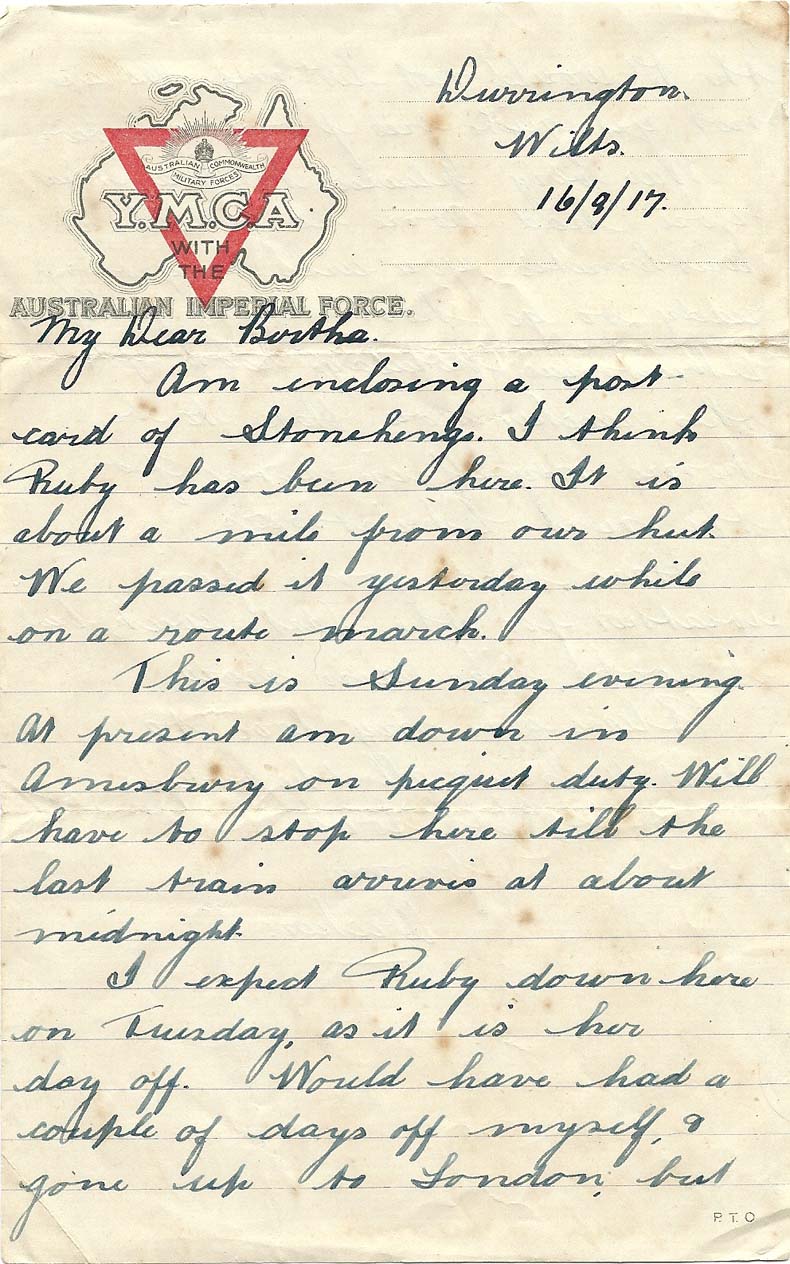 Durrington.
Wilts.
16/9/17.
AUSTRALIAN COMMONWEALTH
MILITARY FORCES
Y.M.C.A
WITH
THE
AUSTRALIAN IMPERIAL FORCE.
My Dear Bertha.
Am enclosing a post-
card of Stonehenge. I think
Ruby has been here. It is
about a mile from our hut.
We passed it yesterday while
on a route march.
This is Sunday evening.
At present am down in
Amesbury on picquet duty. Will
have to stop here till the
last train arrives at about
midnight.
I expect Ruby down here
on Tuesday, as it is her
day off. Would have had a
couple of days off myself, &
gone up to London, but
P.T.O